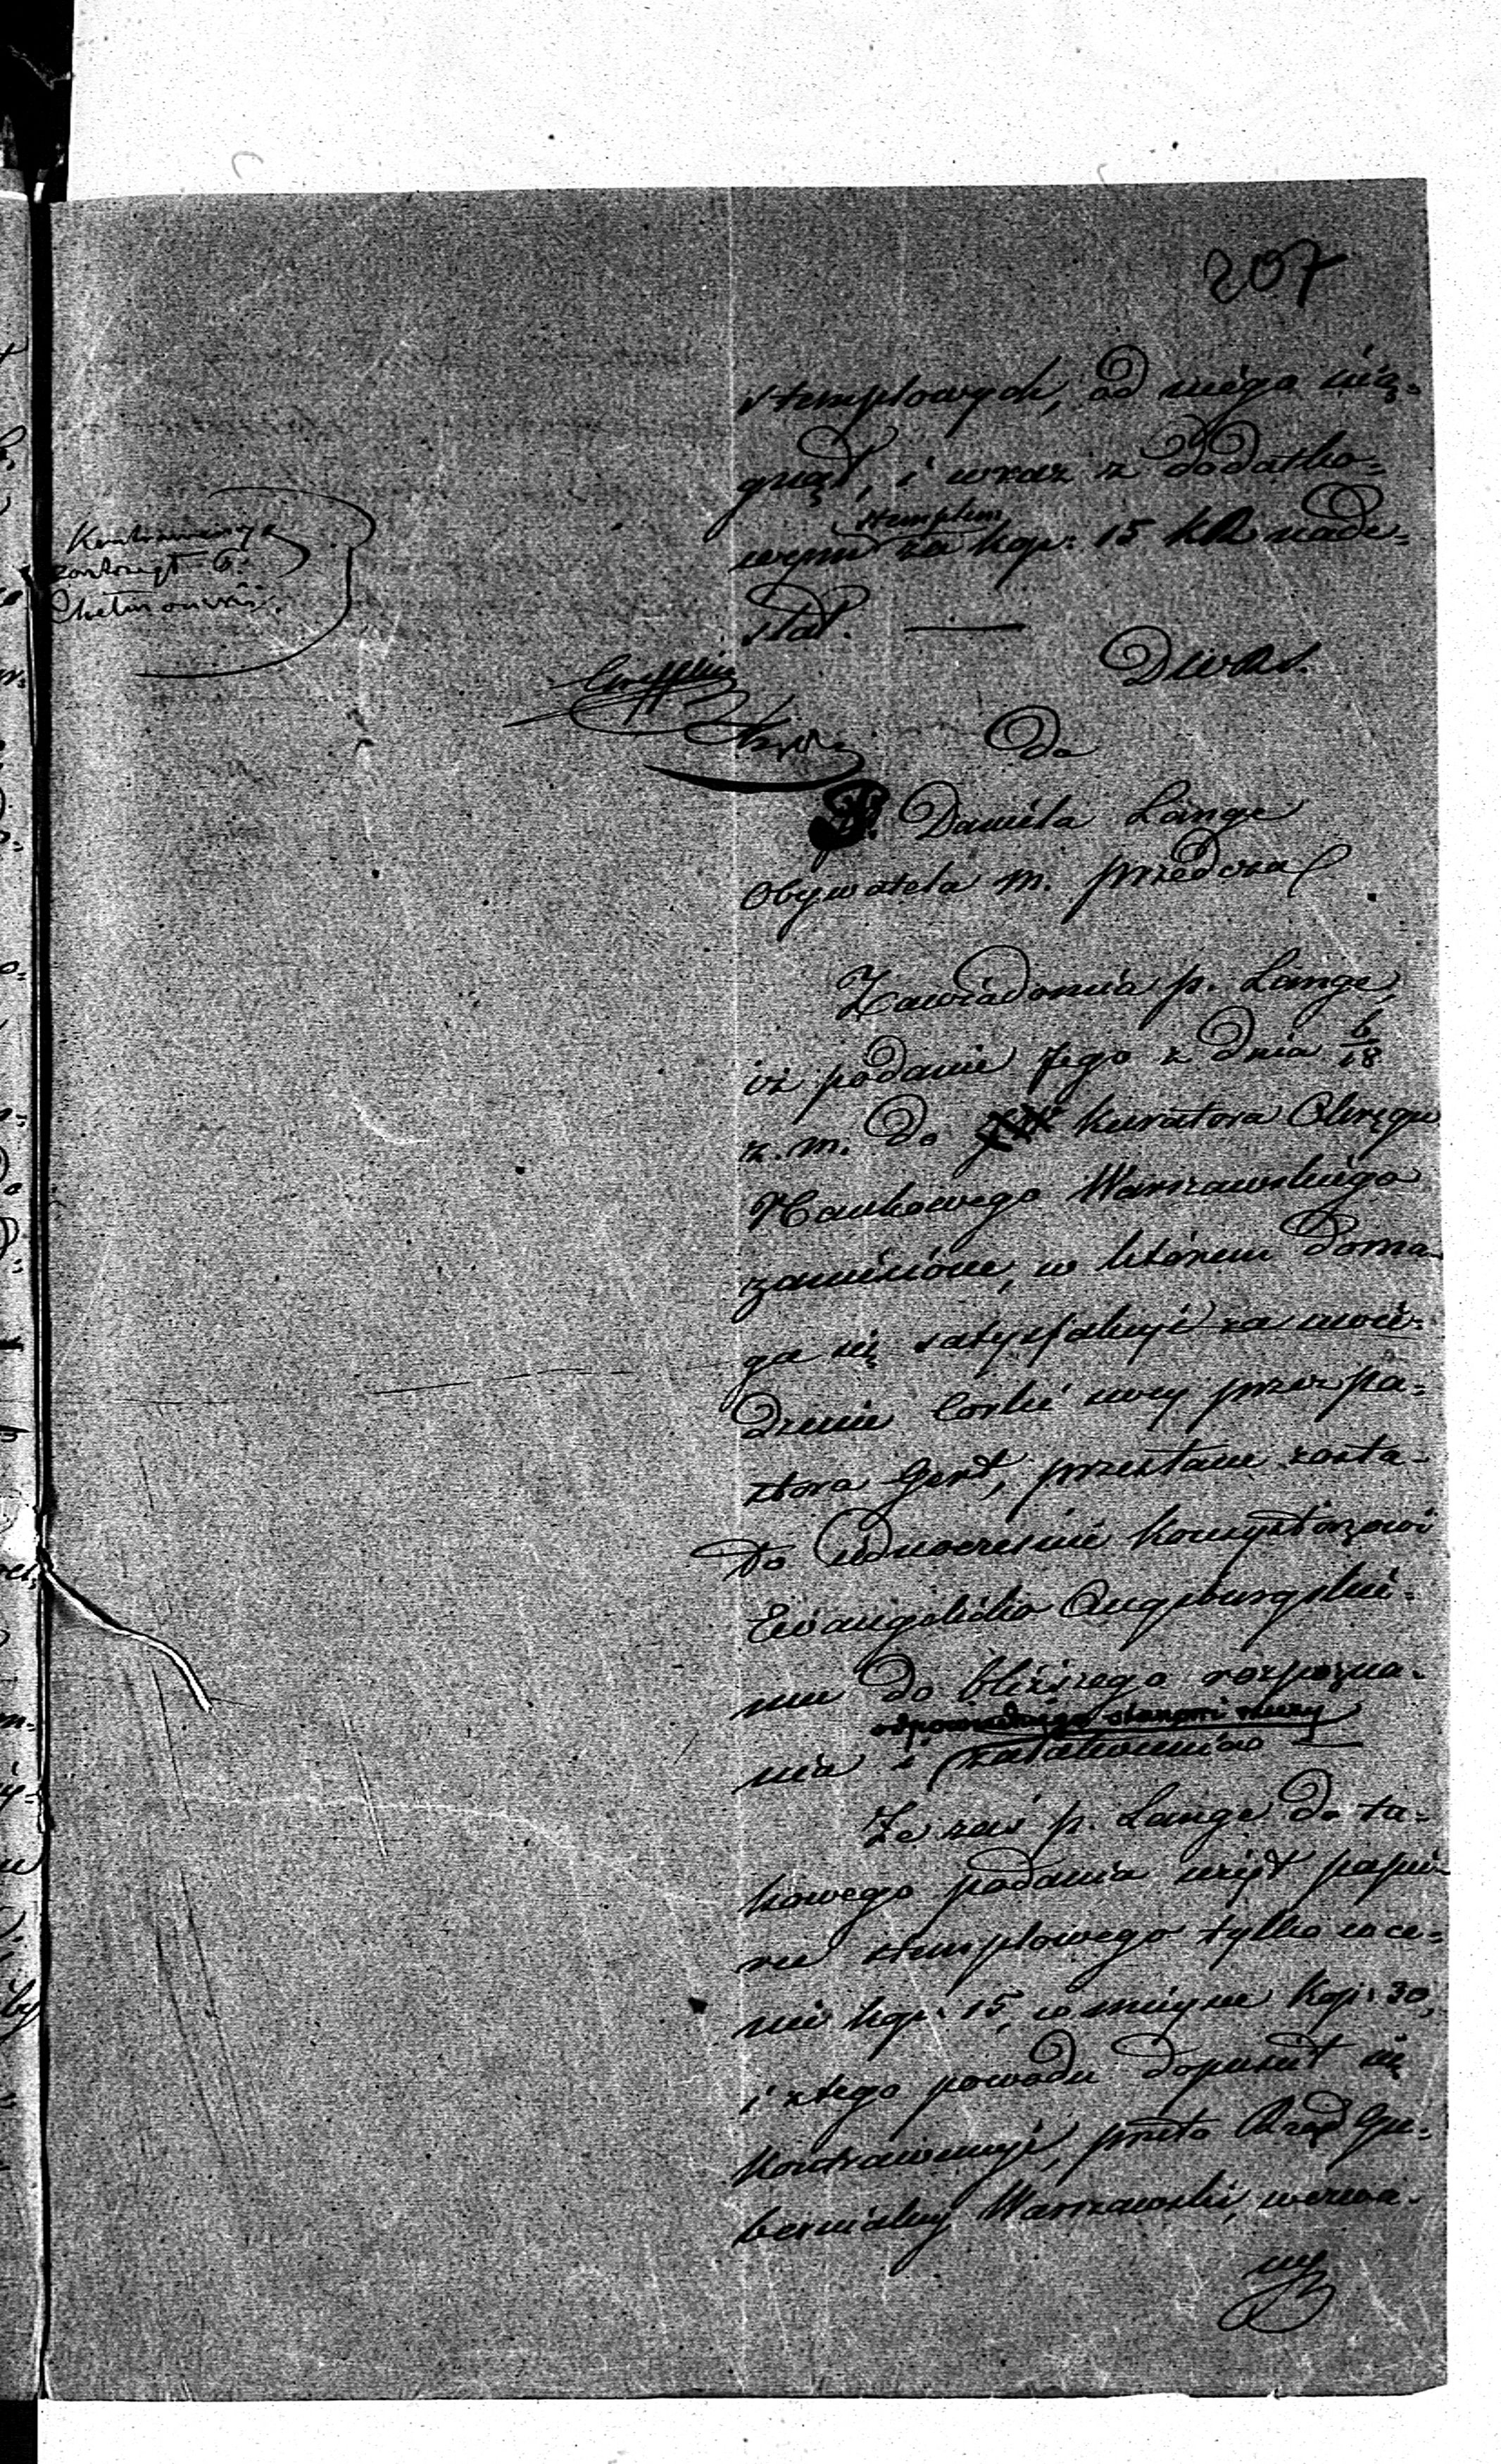 207
stemplowych, od niego ścią-
gnął, i wraz z dodatko-
stemplem
wym za kop: 15 nade-
słał. —
Kontrawencye
Do
Daniela Lange
Obywatela m. Przedcza
Zawiadomia p. Lange,
iż podanie Jego z dnia 6/18
z. m. do Kuratora Okręgu
Naukowego Warszawskiego
zaniesione, w którem doma-
ga się satysfakcyi za uwie-
dzenie Córki swey przez pa-
stora Gerst, przesłane zosta-
ło jednocześnie Konsystorzowi
Ewangelicko Augsburgskie-
mu do bliższego rozpozna-
odpowiedniego stanowi rzeczy
nia i załatwienia —
Że zaś p. Lange do ta-
kowego podania użył papie-
ru stemplowego tylko w ce-
nie kop: 15, w mieysce Kop: 30,
i z tego powodu dopuścił się
Kontrawencyi, przeto Rząd Gu-
bernialny Warszawski, wzywa-